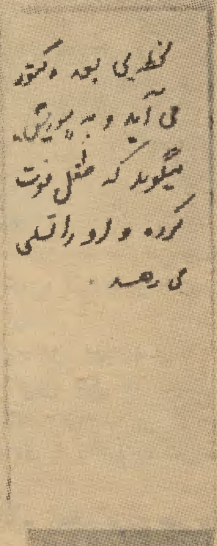 لحظه‌یی بعد دکتر
می آید و به پوریش.
میگوید که طفل فوت
کرده و او را تسلی
می دهد.